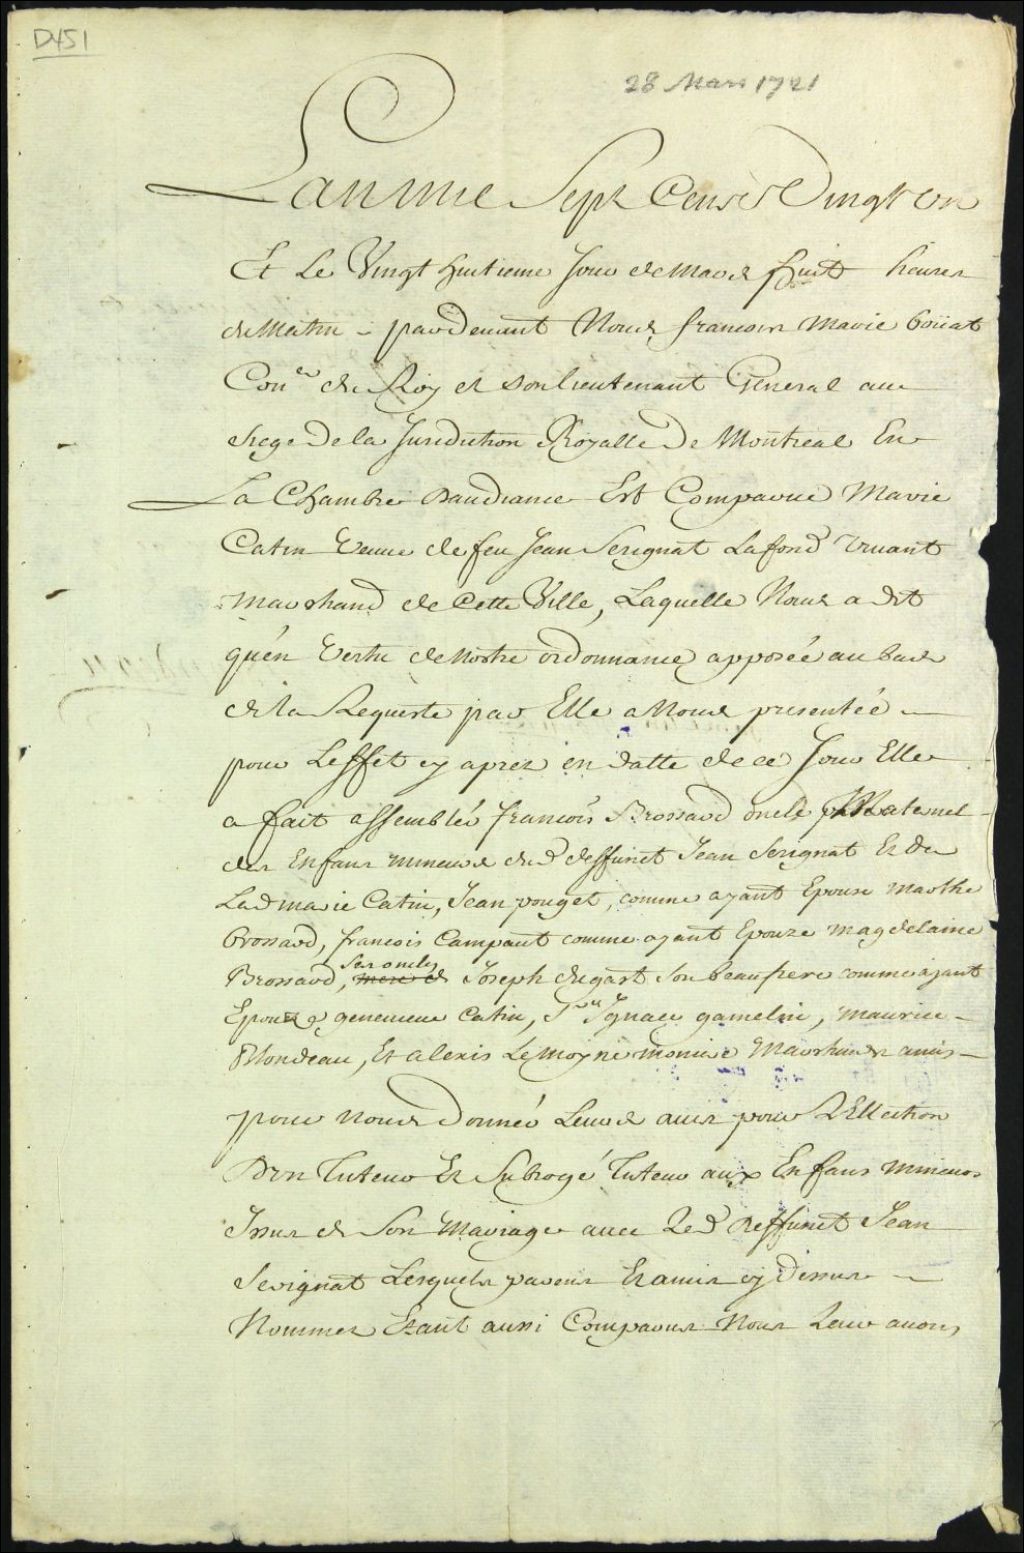 D451
28 Mars 1721
Lan mil Sept Cens Vingt un
Et Le Vingt huitieme Jour de Mars huit heures
du Matin pardevant Nous francois Marie boüat
Con.er du Roy et son lieutenant General au
siege De la Jurisdiction Royalle De Montreal En
La Chambre daudiance Est Comparue Marie
Catin veuve de feu Jean Serignat Lafond vivant
marchand de Cette Ville, Laquelle Nous a dit
qu'en vertu de Nostre ordonnance apposée au bas
de la Requeste par Elle a Nous presentée
pour Leffet cy apres en datte de ce Jour Elle
a fait assemblér francois Brossard oncle Maternel
des Enfans mineurs dud deffunct Jean Serignat Et de
Lad marie Catin, Jean pouget, comme ayant Epouse marthe
brossard, francois Campaut comme ayant Epouze magdelaine
Brossard, ses oncles Joseph dugast son beau frere comme ayant
Epouze genevieve Catin, Sr Ignace gamelin, maurice
Blondeau, Et alexis Lemoyne moniere Marchands amis
pour nous donnér Leurs avis pour L'Ellection
D'un Tuteur Et Subrogé Tuteur aux Enfans mineurs
Issus de Son Mariage avec Led deffunct Jean
Serignat Lesquels parens Et amis cy dessus
Nommes Etant aussi Comparus Nous Leur avons